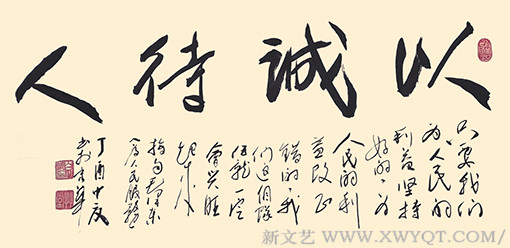 以誠待人
只要我们
为人民的
利益坚持
好的为
人民的利
益改正
错的我
们这個隊
伍就一定
會兴旺
起来
毛泽东
为人民服务
丁酉
新文艺/WWW.XWYQT.COM